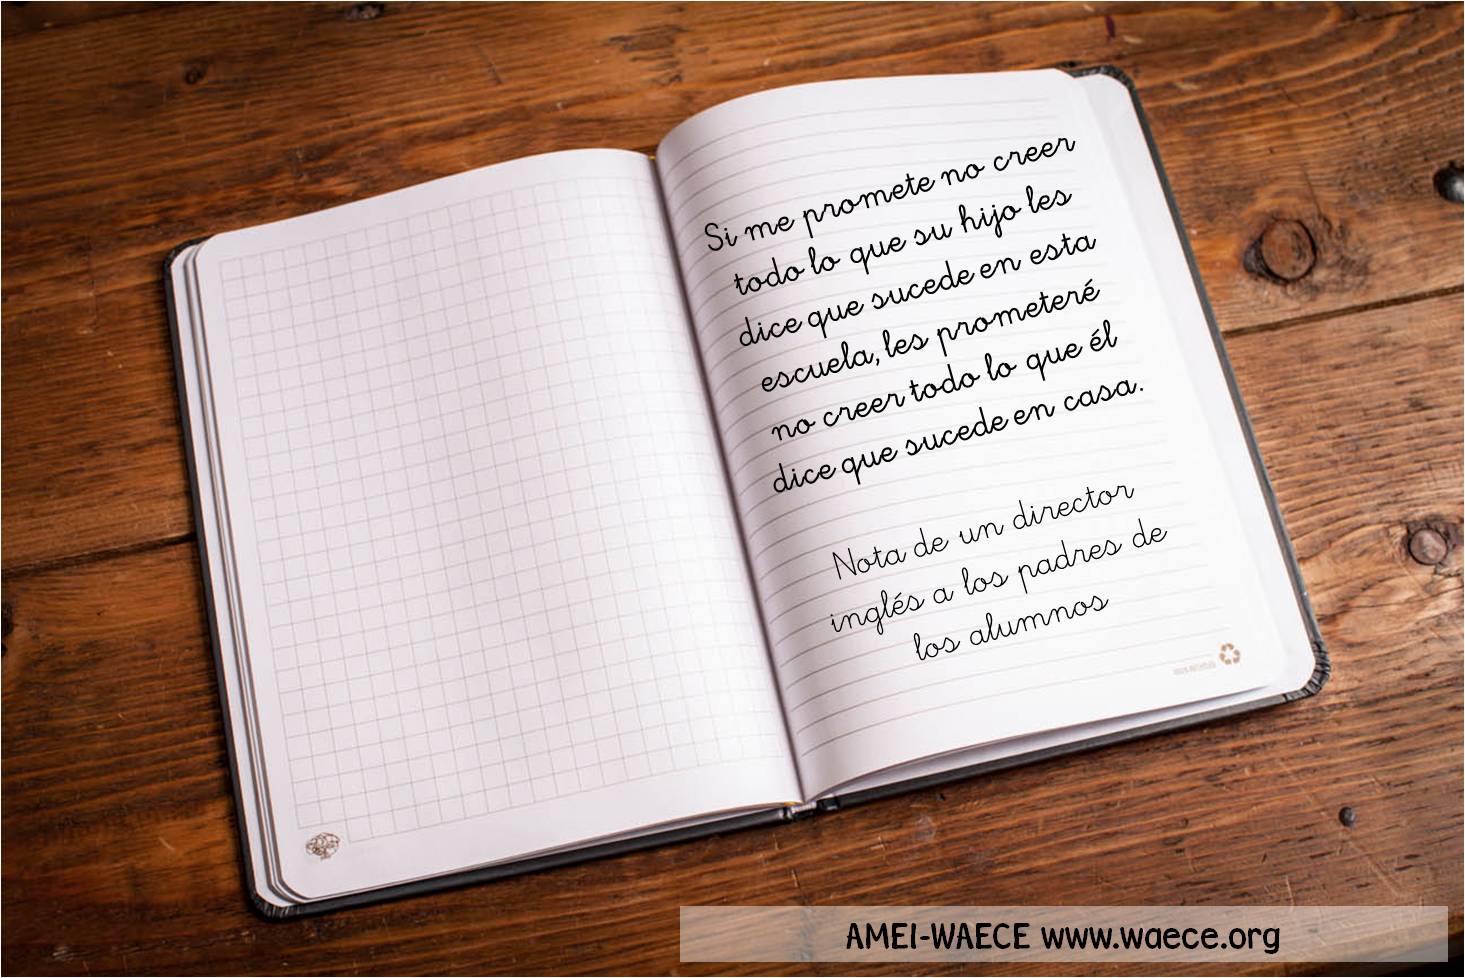 Si me promete no creer
todo lo que su hijo les
dice que sucede en esta
escuela, les prometeré
no creer todo lo que él
dice que sucede en casa.
Nota de un director
inglés a los padres de
los alumnos
AMEI-WAECE www.waece.org